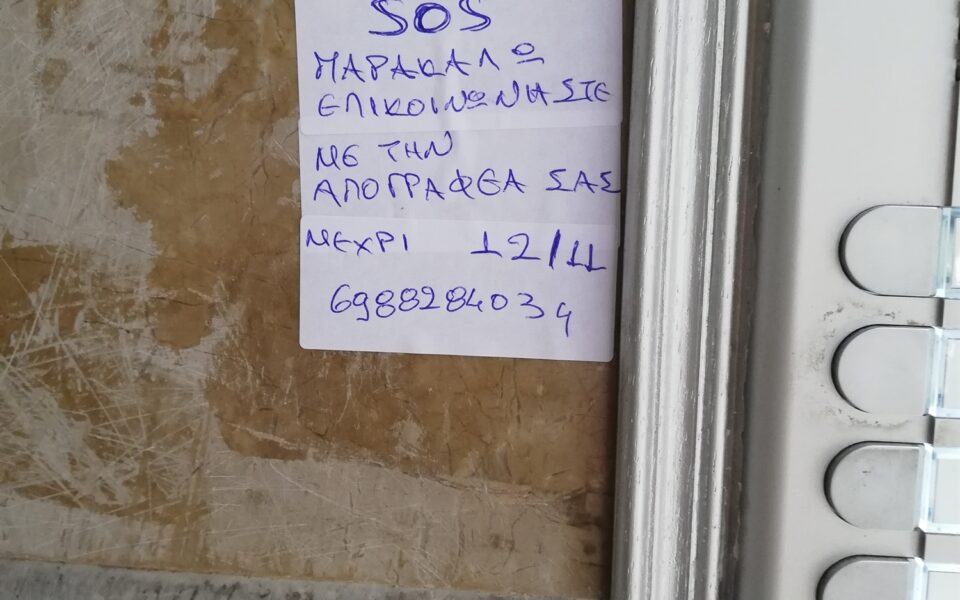 SOS
ΠΑΡΑΚΑΛΩ
ΕΠΙΚΟΙΝΩΝΗΣΤΕ
ΜΕ ΤΗΝ
ΑΠΟΓΡΑΦΕΑ ΣΑΣ
ΜΕΧΡΙ 12/11
6988284034